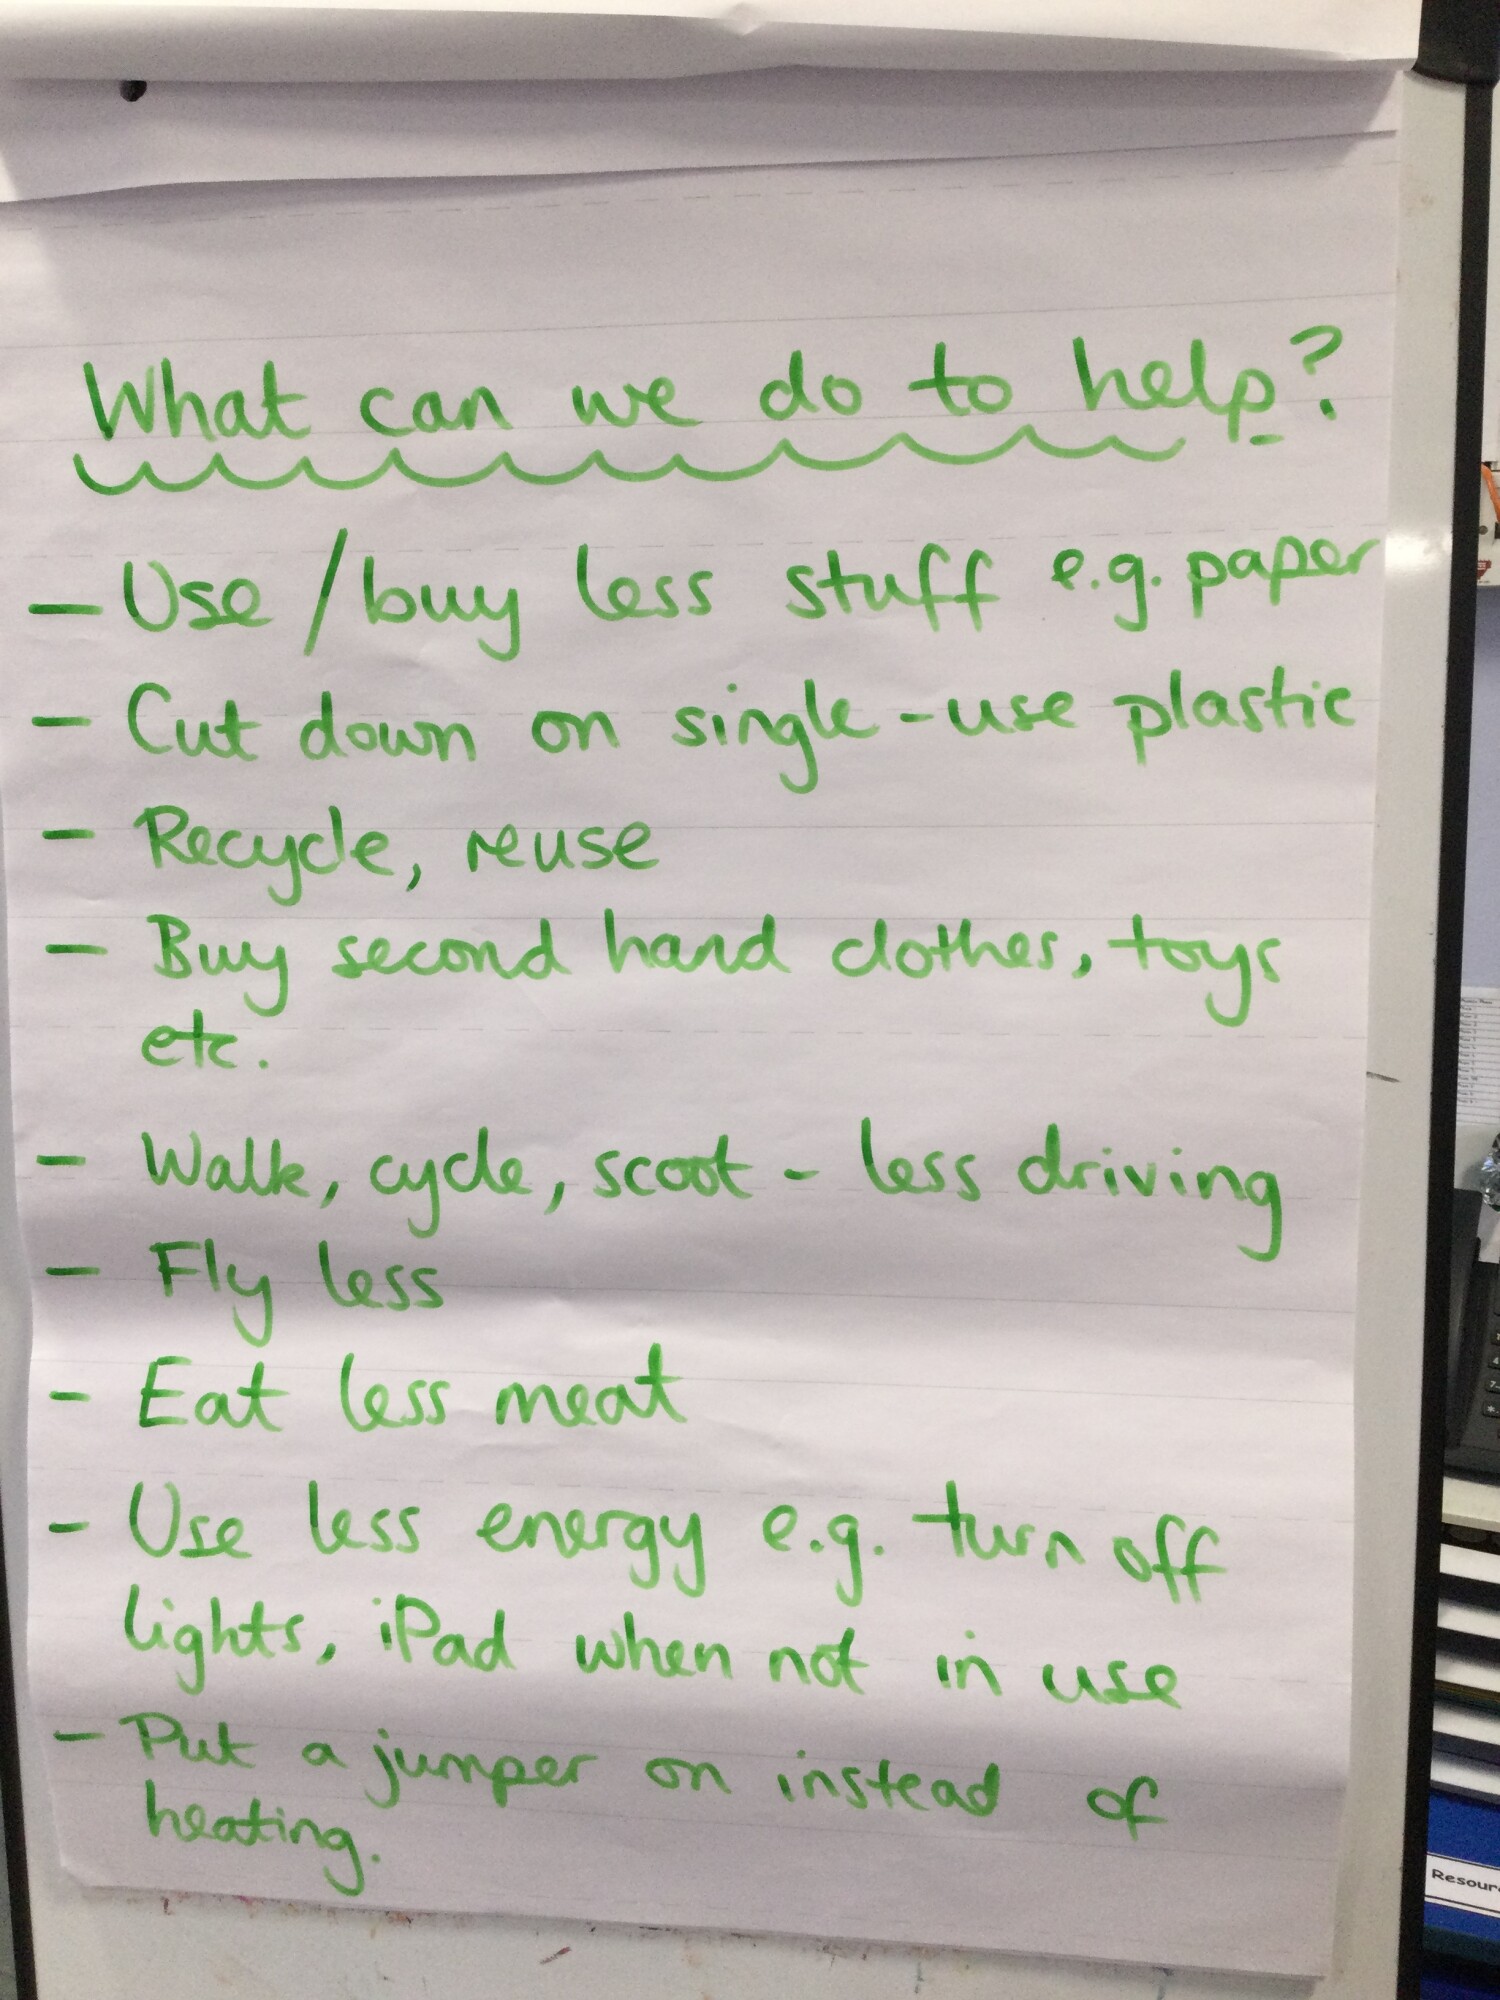 What can we do to help?
- Use / buy less stuff e.g. paper
- Cut down on single-use plastic
- Recycle, reuse
- Buy second hand clothes, toys
etc.
- Walk, cycle, scoot - less driving
- Fly less
- Eat less meat
- Use less energy e.g. turn off
lights, iPad when not in use
- Put a jumper on instead of
heating.